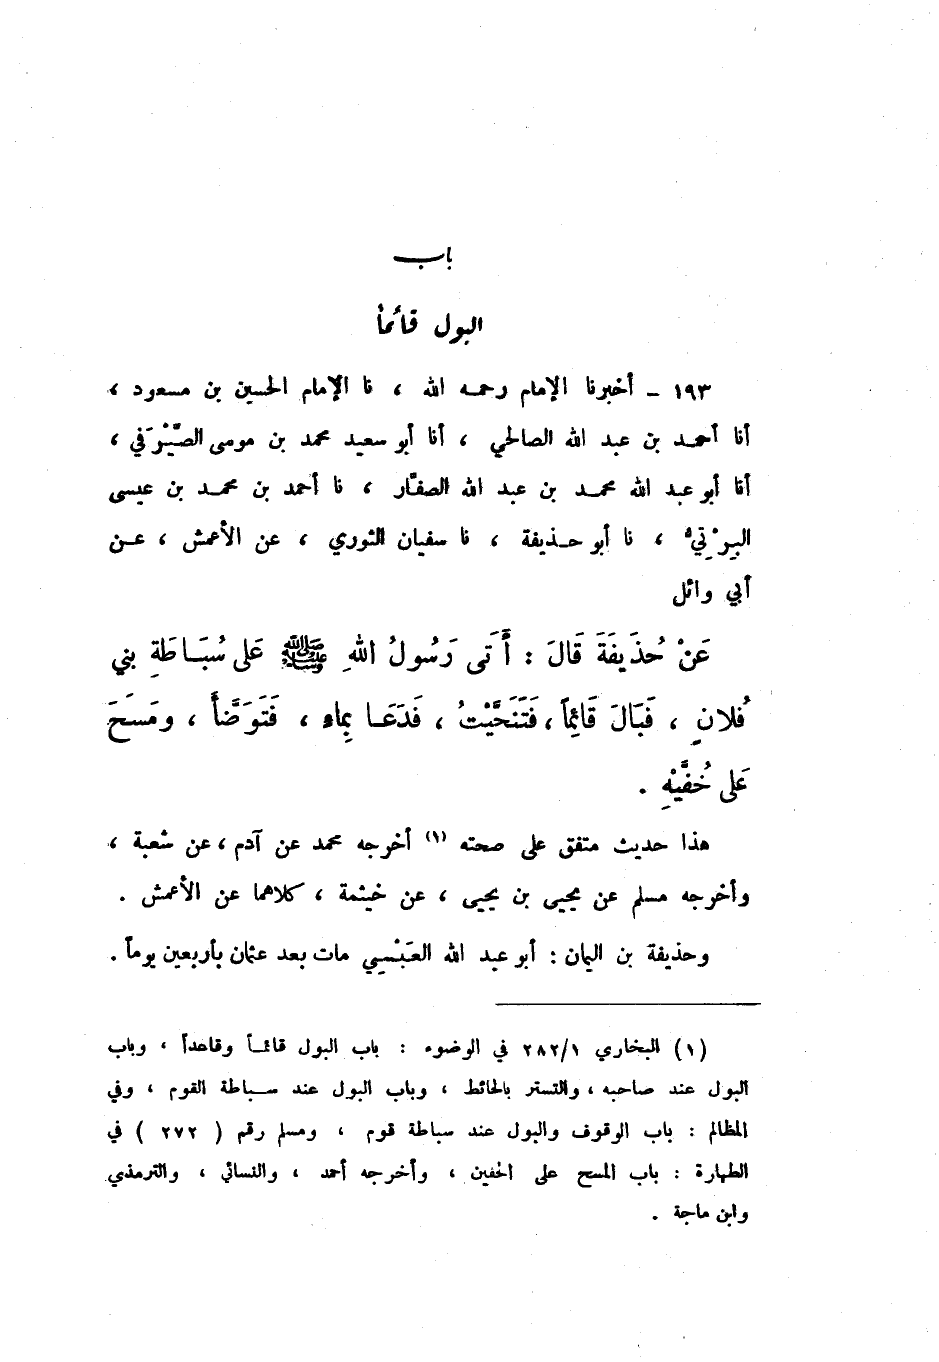 باب
البول قائماً
١٩٣ ـ أخبرنا الإمام رحمه الله ، نا الإمام الحسين بن مسعود ،
أنا أحمد بن عبد الله الصالحي ، أنا أبو سعيد محمد بن موسى الصَّيْرَفي ،
أنا أبو عبد الله محمد بن عبد الله الصفّار ، نا أحمد بن محمد بن عيسى
البِرْتيُّ ، نا أبو حذيفة ، نا سفيان الثوري ، عن الأعمش ، عن
أبي وائل
عَنْ حُذَيفَةَ قَالَ : أَتَى رَسُولُ اللهِ ﷺ عَلى سُبَاطَةِ بني
فُلانٍ ، فَبَالَ قَائِماً ، فَتَنَحَّيْتُ ، فَدَعَا بِماءٍ ، فَتَوَضَّأَ ، ومَسَحَ
عَلى خُفَّيْهِ .
هذا حديث متفق على صحته (١) أخرجه محمد عن آدم ، عن شعبة ،
وأخرجه مسلم عن يحيى بن يحيى ، عن خيثمة ، كلاهما عن الأعمش .
وحذيفة بن اليمان : أبو عبد الله العَبْسِي مات بعد عثمان بأربعين يوماً .
(١) البخاري ٢٨٢/١ في الوضوء : باب البول قائماً وقاعداً ، وباب
البول عند صاحبه ، والتستر بالحائط ، وباب البول عند سباطة القوم ، وفي
المظالم : باب الوقوف والبول عند سباطة قوم ، ومسلم رقم ( ٢٧٢ ) في
الطهارة : باب المسح على الخفين ، وأخرجه أحمد ، والنسائي ، والترمذي
وابن ماجة .